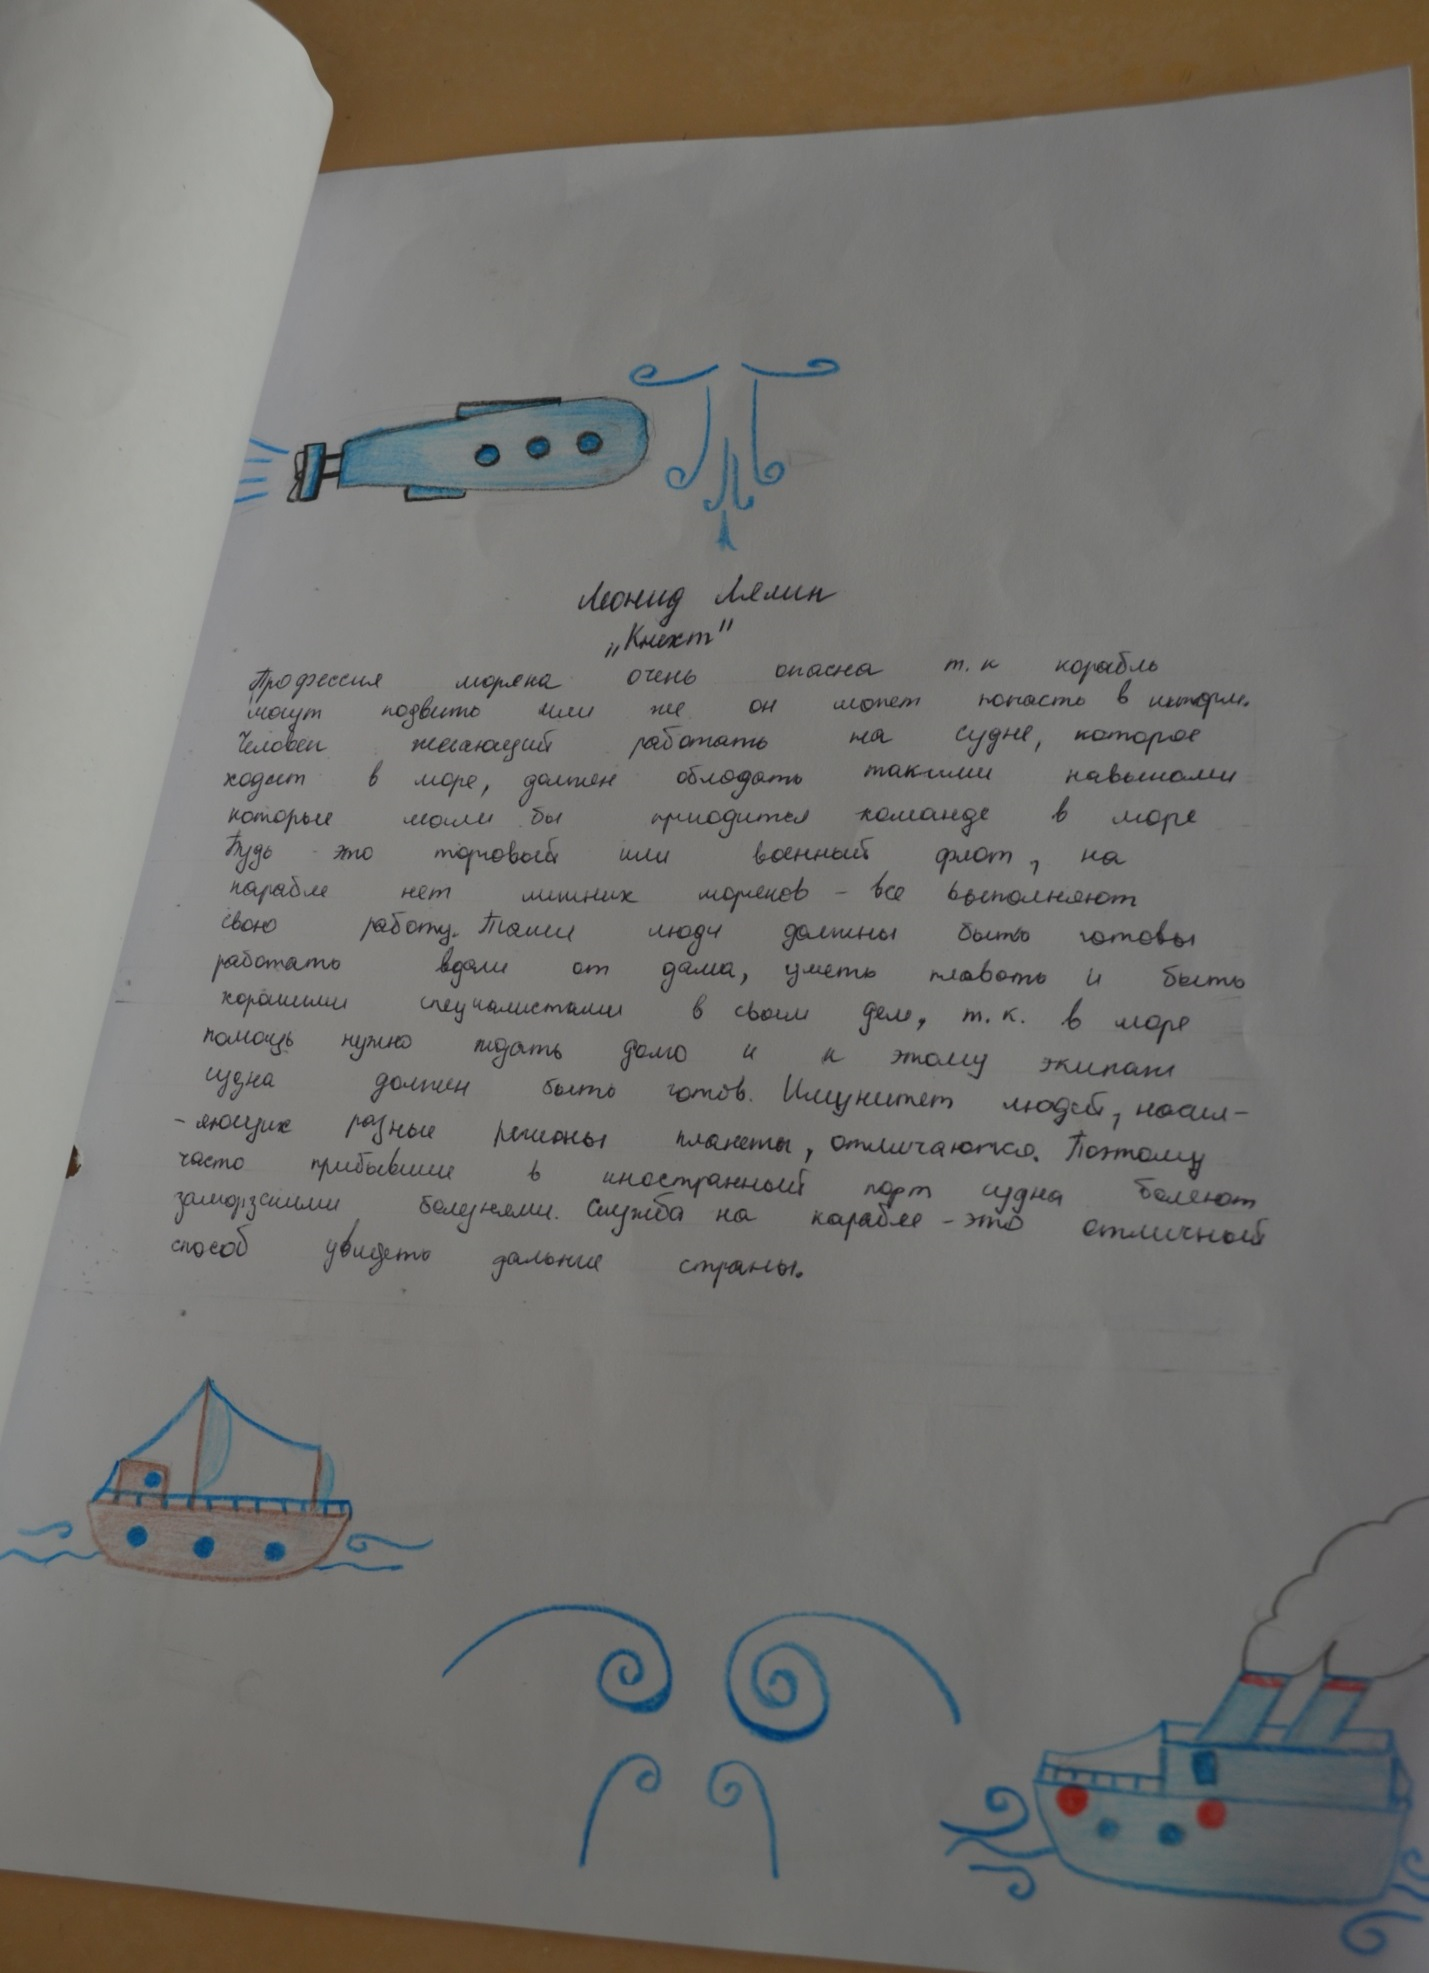 Леонид Лялин
„Кнехт"
Профессия моряка очень опасна т.к корабль
могут подбить или же он может попасть в шторм.
Человек желающий работать на судне, которое
ходит в море, должен обладать такими навыками
которые могли бы приодится команде в море
Будь это торговый или военный флот, на
карабле нет лишних моряков - все выполняют
свою работу. Такие люди должны быть готовы
работать вдали от дома, уметь плавать и быть
хорошими специалистами в своем деле, т.к. в море
помощь нужно ждать долго и к этому экипаж
судна должен быть готов. Имунитет людей, насил-
-яющих разные регионы планеты, отличаются. Поэтому
часто прибывшие в иностранный порт судна болеют
заморзскими болезнями. Служба на карабле - это отличный
способ увидеть дальние страны.